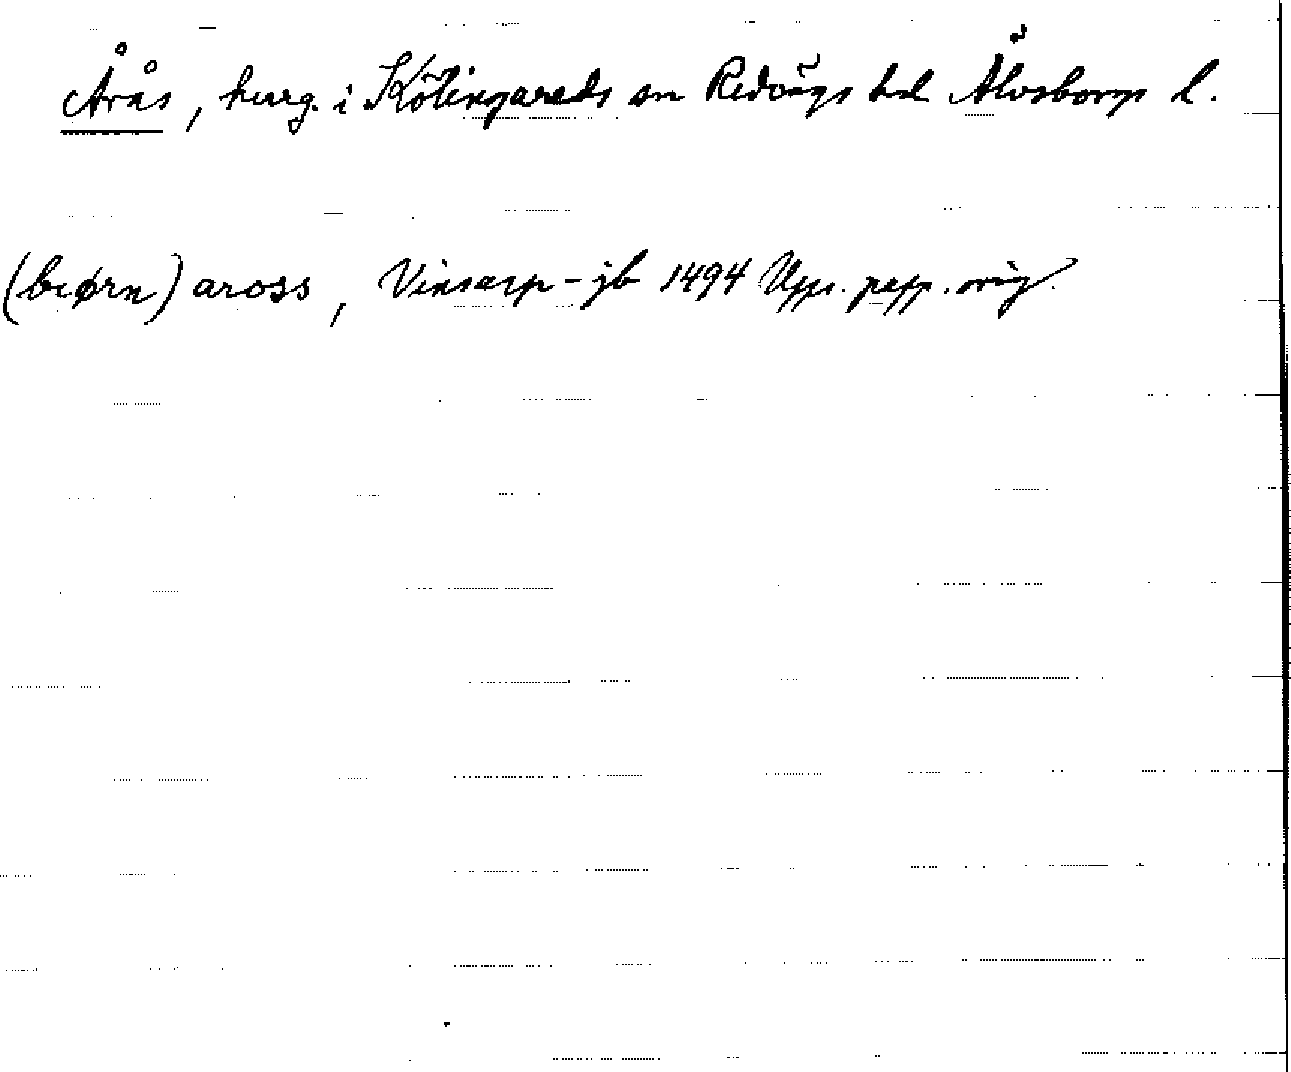 Årås, herrg. i Kölingareds sn Redvägs hd Älvsborgs l.
(biørn) aross, Vinsarp-jb 1494 Upps. papp. orig.